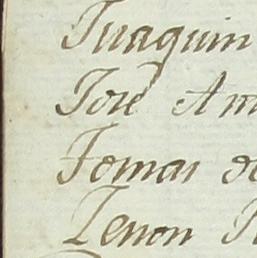 Juaquin
Jose Am
Tomas de
Zenon